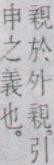 親於外親。引
申之義也。